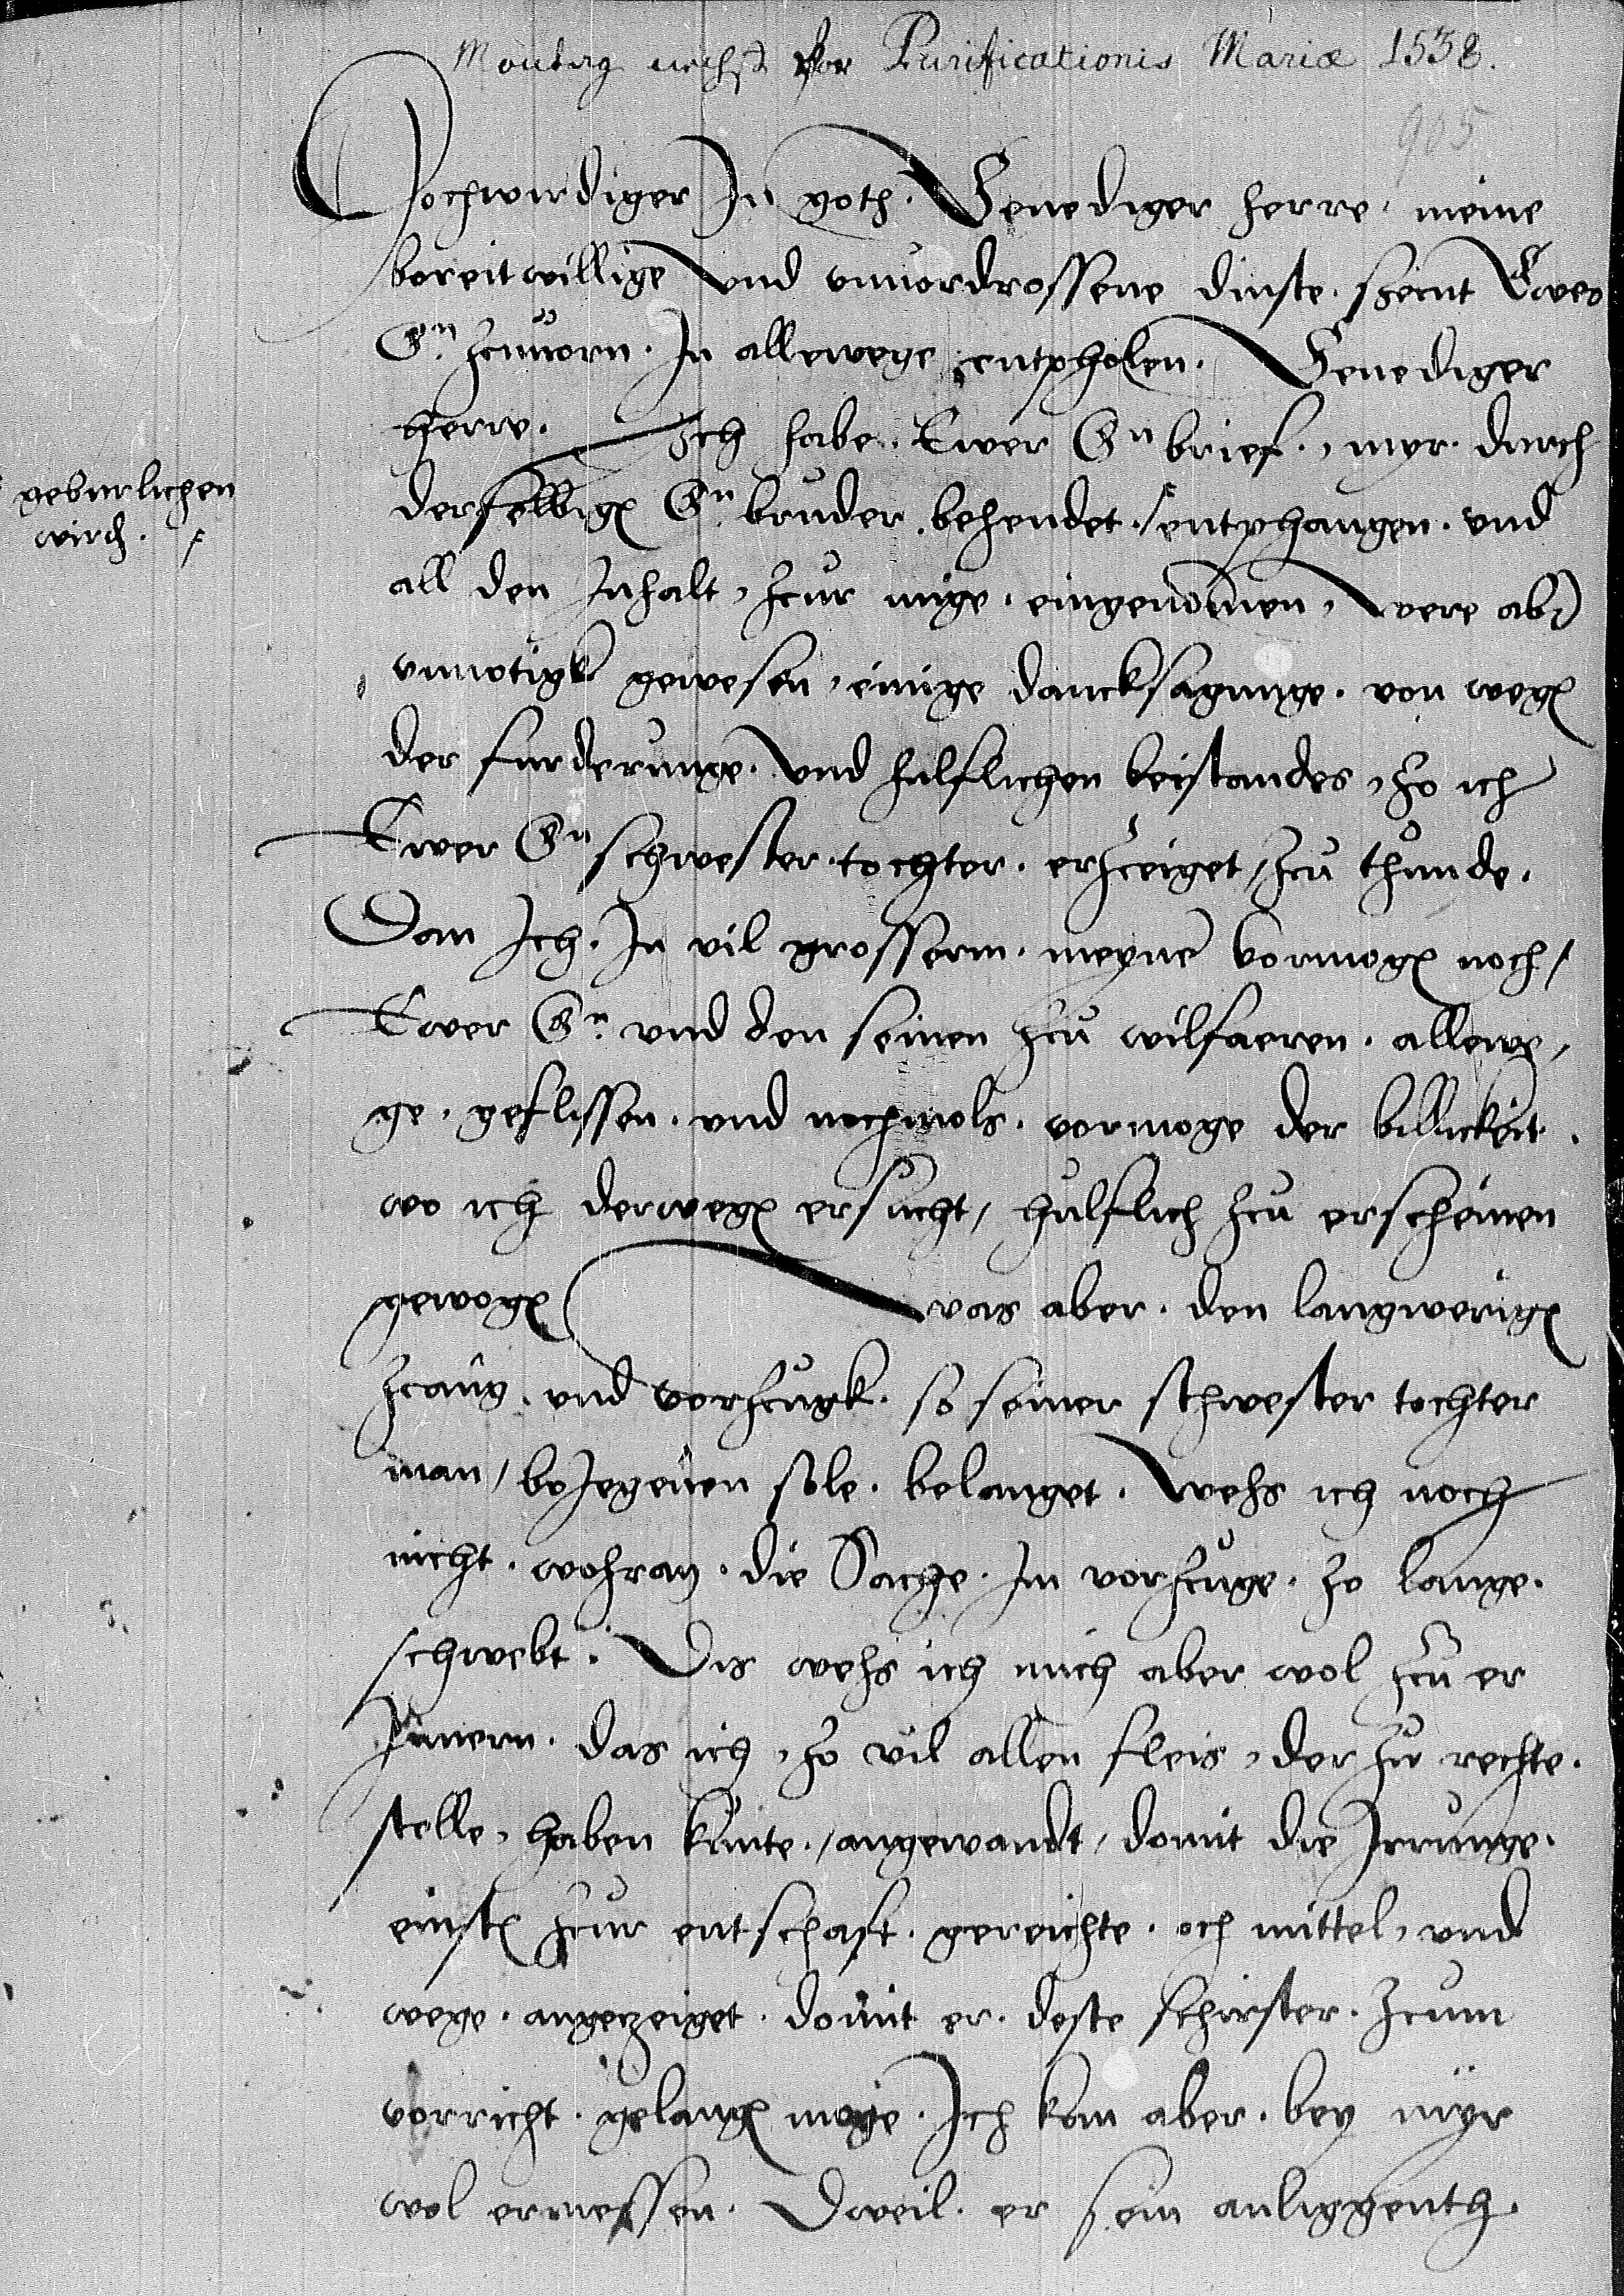 Montag nechst vor Purificationis Mariæ 1538.
905
Hochwirdiger In goth. Genediger herre. meine
bereitwillige vnd vnuordrossene dinste. seint Ewer
Gn. zcuuorn. In allewege entpholen. Genediger
herre. Ich habe. Ewer Gn brief., myr. durch
derselbigen Gn. bruder. behendet / entphangen. vnd
geburlichen
wirch.
all den Inhalt, zcur nuge. eingenommen, were aber
vnnotigk gewesen, einige dancksagunge. von wegen
der furderunge. vnd hulflichen beistandes, so ich
Ewer Gn schwester tochter. erzceiget / zcu thunde.
Dan Ich. In vil grosserm. meyne vormogen noch /
Ewer Gn. vnd den seinen zcu wilfaeren. allewe,
ge. geflissen. vnd nochmols. vormoge der billickeit.
wo ich derwegen ersucht / hulflich zcu erscheinen
gewogen was aber. den langwerigen
zcang. vnd vorzcugk. so seiner schwester tochter
man / beJegenen sole. belanget. wehs ich noch
nicht. wohran. die Sache. Im vorzcuge. so lange.
schwebt. Dis wehs ich mich aber wol zcu er
Jnnern. das ich, so vil allen fleis, der zu rechte.
stelle, haben kunte. / angewandt / domit die Jrrunge.
einsten zcur entschaft. gereichte. och mittel, vnd
wege. angezeiget. domit er. deste schirster. zcum
vorricht. gelangen moge. Ich kan aber. bey myr
wol ermessen. Dweil. er sein anliggenth.